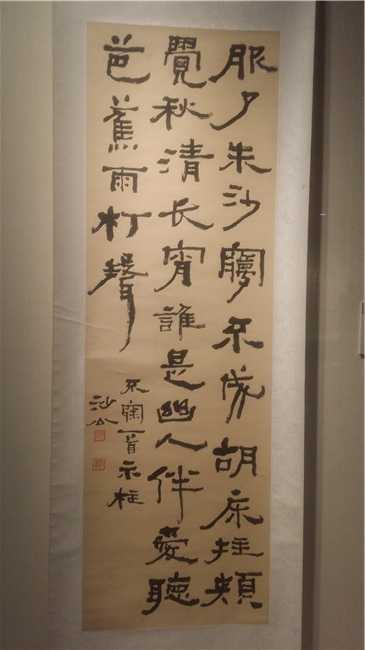 服了朱沙夢不成胡床拄頰
覺秋清長宵誰是幽人伴愛聽
芭蕉雨打聲
不寐一首示柱
沙公